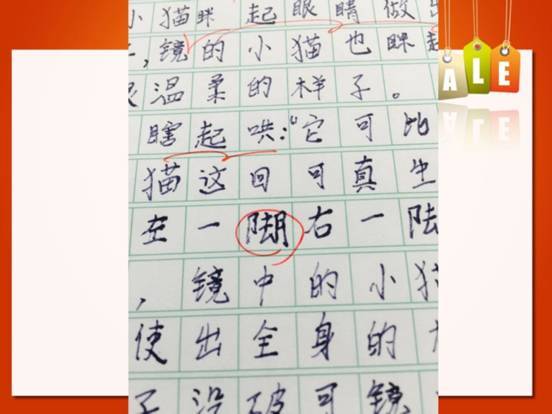 小猫眯起眼睛做
,镜的小猫也眯起
温柔的样子。
瞎起哄:“它可比
猫这回可真生
在一 右一
,镜中的小猫
使出全身的
子没破可镜
ALE